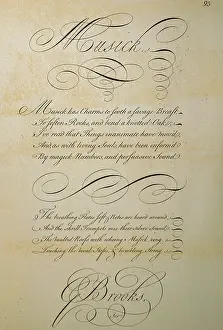 95
Musick.
Musick has Charms to sooth a savage Breast
To soften Rocks, and bend a knotted Oak:
I've read that Things inanimate have mov'd
And as with living Souls have been inform'd
By magick Numbers, and perswasive Sound
The breathing Flutes soft Notes are heard around
And the shrill Trumpets mix their silver Sound
The vaulted Roofs with echoing Musick rung
Touching the vocal Stops, & trembling String
Brooks,